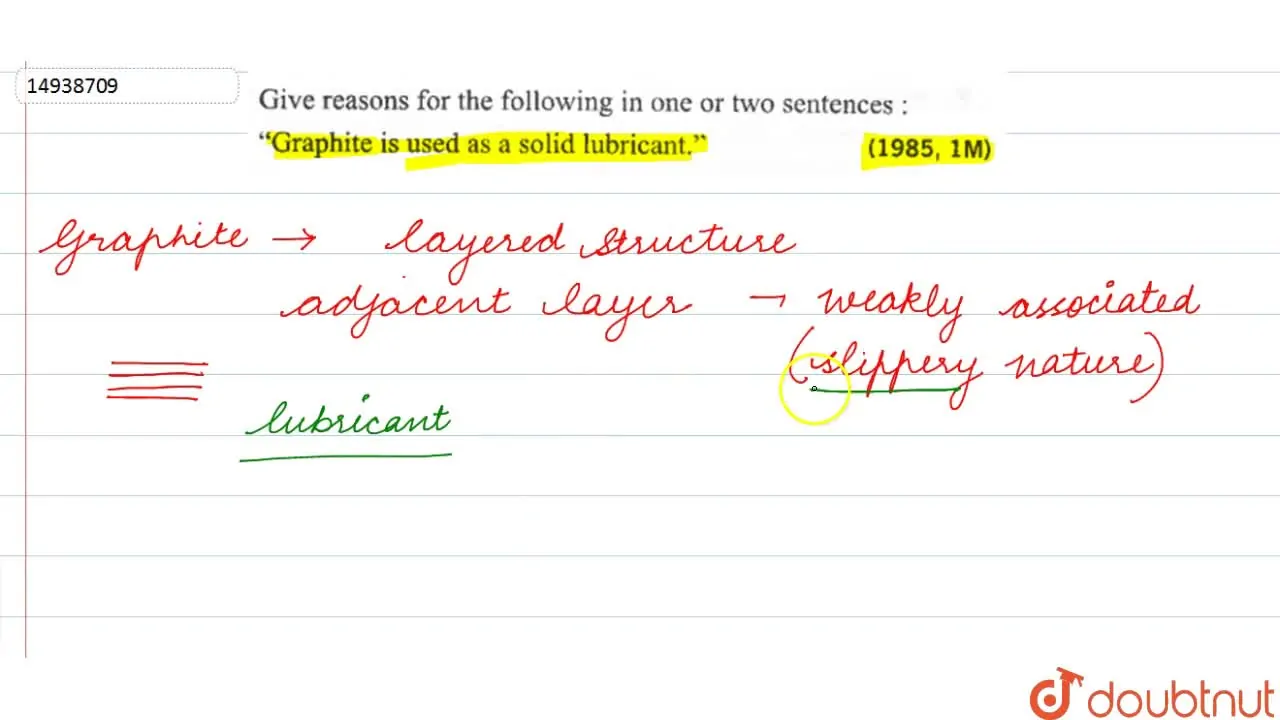 14938709
Give reasons for the following in one or two sentences :
“Graphite is used as a solid lubricant.” (1985, 1M)
Graphite → layered structure
adjacent layer → weakly associated
(slippery nature)
lubricant
doubtnut